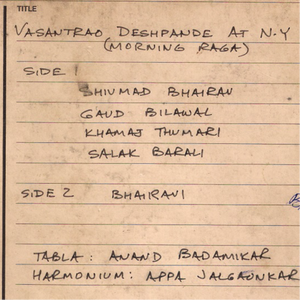 TITLE
VASANTRAO DESHPANDE AT N.Y
(MORNING RAGA)
SIDE 1
SHIVMAD BHAIRAV
GAUD BILAWAL
KHAMAJ THUMARI
SALAK BARALI
SIDE 2 BHAIRAVI
TABLA: ANAND BADAMIKAR
HARMONIUM: APPA JALGAONKAR